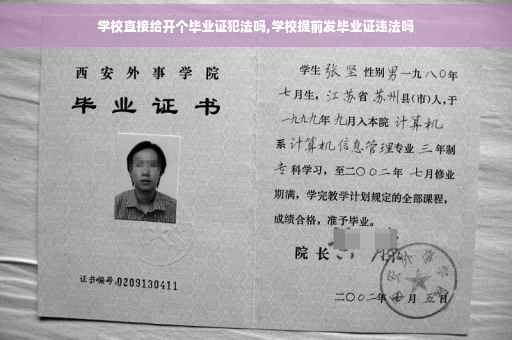 学校直接给开个毕业证犯法吗,学校提前发毕业证违法吗
西安外事学院
毕业证书
证书编号:0209130411
学生 张坚 性别 男 一九八〇年
七月生，江苏省 苏州 县(市)人,于
一九九九年九月入本院 计算机
系 计算机信息管理 专业 三 年制
专 科学习，至二〇〇二年 七月修业
期满，学完教学计划规定的全部课程，
成绩合格，准予毕业。
院长
二〇〇二年 月五日